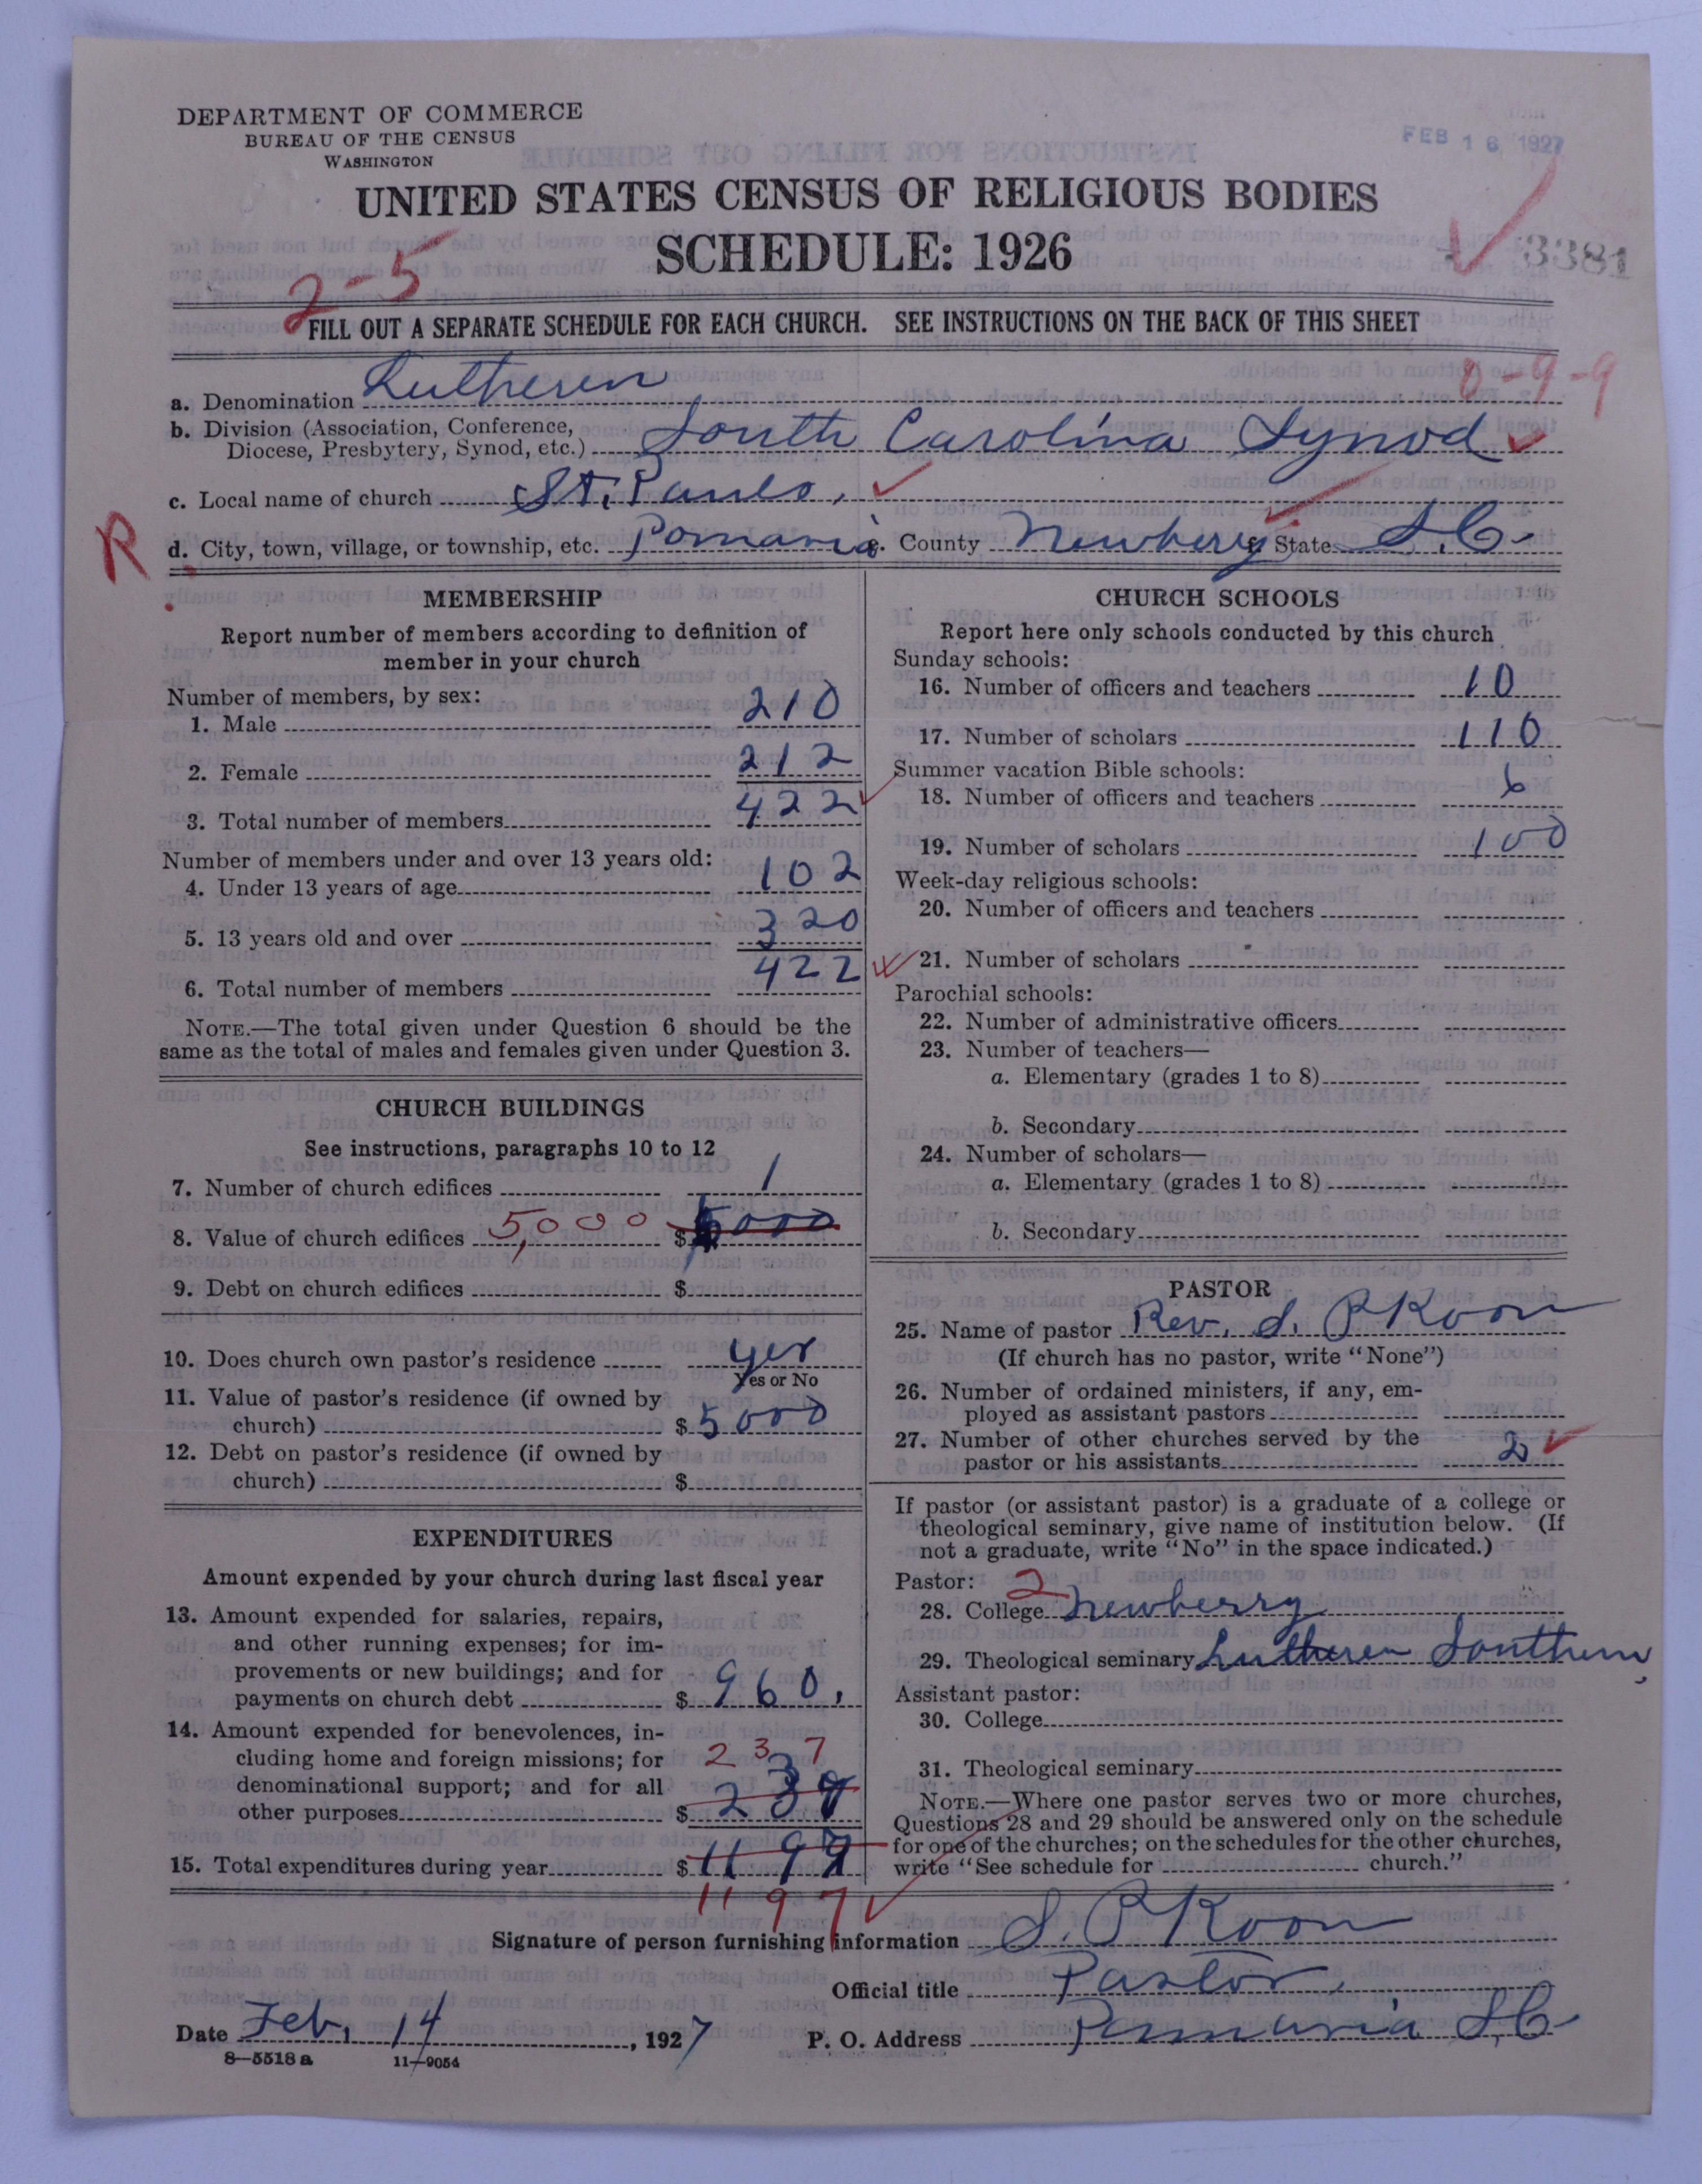 DEPARTMENT OF COMMERCE
BUREAU OF THE CENSUS
WASHINGTON
FEB 16 1927
UNITED STATES CENSUS OF RELIGIOUS BODIES
SCHEDULE: 1926
3381
2-5
FILL OUT A SEPARATE SCHEDULE FOR EACH CHURCH. SEE INSTRUCTIONS ON THE BACK OF THIS SHEET
0-9-9
a. Denomination Lutheren
b. Division (Association, Conference,
Diocese, Presbytery, Synod, etc.) South Carolina Synod
c. Local name of church St. Pauls.
R
d. City, town, village, or township, etc. Pomaria e. County Newberry f. State S.C.
MEMBERSHIP
Report number of members according to definition of
member in your church
Number of members, by sex:
1. Male 210
2. Female 212
3. Total number of members 422
Number of members under and over 13 years old:
4. Under 13 years of age 102
5. 13 years old and over 320
6. Total number of members 422
NOTE.—The total given under Question 6 should be the
same as the total of males and females given under Question 3.
CHURCH BUILDINGS
See instructions, paragraphs 10 to 12
7. Number of church edifices 1
8. Value of church edifices 5,000 $ 5000
9. Debt on church edifices $
10. Does church own pastor's residence yes
Yes or No
11. Value of pastor's residence (if owned by
church) $ 5000
12. Debt on pastor's residence (if owned by
church) $
EXPENDITURES
Amount expended by your church during last fiscal year
13. Amount expended for salaries, repairs,
and other running expenses; for im-
provements or new buildings; and for
payments on church debt $ 960.
14. Amount expended for benevolences, in-
cluding home and foreign missions; for
237
denominational support; and for all
other purposes $ 237
15. Total expenditures during year $ 1197
1197
CHURCH SCHOOLS
Report here only schools conducted by this church
Sunday schools:
16. Number of officers and teachers 10
17. Number of scholars 110
Summer vacation Bible schools:
18. Number of officers and teachers 6
19. Number of scholars 100
Week-day religious schools:
20. Number of officers and teachers
21. Number of scholars
Parochial schools:
22. Number of administrative officers
23. Number of teachers—
a. Elementary (grades 1 to 8)
b. Secondary
24. Number of scholars—
a. Elementary (grades 1 to 8)
b. Secondary
PASTOR
25. Name of pastor Rev. S. P Koon
(If church has no pastor, write "None")
26. Number of ordained ministers, if any, em-
ployed as assistant pastors
27. Number of other churches served by the
pastor or his assistants 2
If pastor (or assistant pastor) is a graduate of a college or
theological seminary, give name of institution below. (If
not a graduate, write "No" in the space indicated.)
Pastor: 2
28. College Newberry
29. Theological seminary Lutheren Southern
Assistant pastor:
30. College
31. Theological seminary
NOTE.—Where one pastor serves two or more churches,
Questions 28 and 29 should be answered only on the schedule
for one of the churches; on the schedules for the other churches,
write "See schedule for church."
Signature of person furnishing information S. P Koon
Official title Pastor
Date Feb. 14, 1927 P. O. Address Pomaria S.C
8—5518 a 11—9054